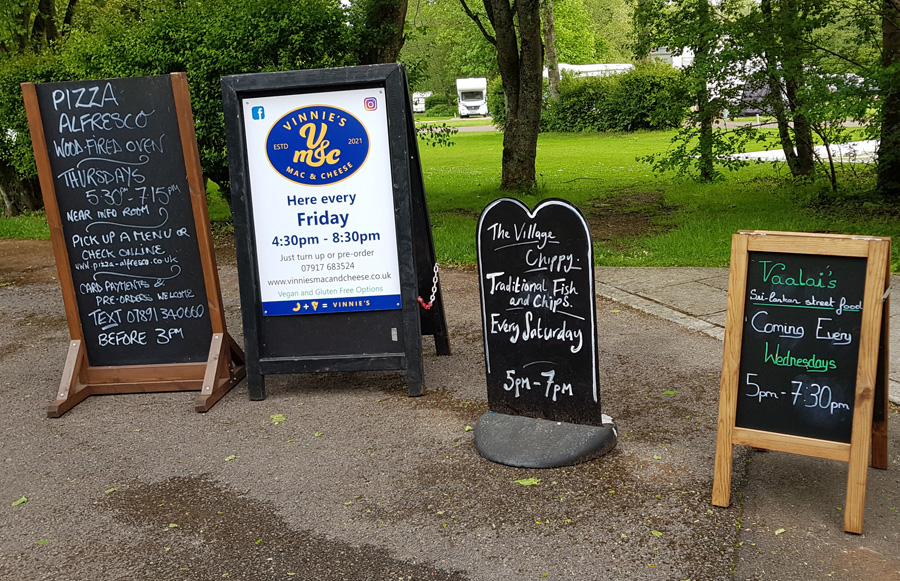 PIZZA
ALFRESCO
WOOD-FIRED OVEN
THURSDAYS
5:30 - 7:15PM
NEAR INFO ROOM
PICK UP A MENU OR
CHECK ONLINE.
www.pizza-alfresco.co.uk
CARD PAYMENTS &
PRE-ORDERS WELCOME
TEXT 07891 340660
BEFORE 3PM
VINNIE'S
ESTD V&C 2021
m
MAC & CHEESE
Here every
Friday
4:30pm - 8:30pm
Just turn up or pre-order
07917 683524
www.vinniesmacandcheese.co.uk
Vegan and Gluten Free Options
+ = VINNIE'S
The Village
Chippy.
Traditional Fish
and Chips.
Every Saturday
5pm-7pm
Vaalai's
Sri-lankan street food
Coming Every
Wednesdays
5pm-7:30pm